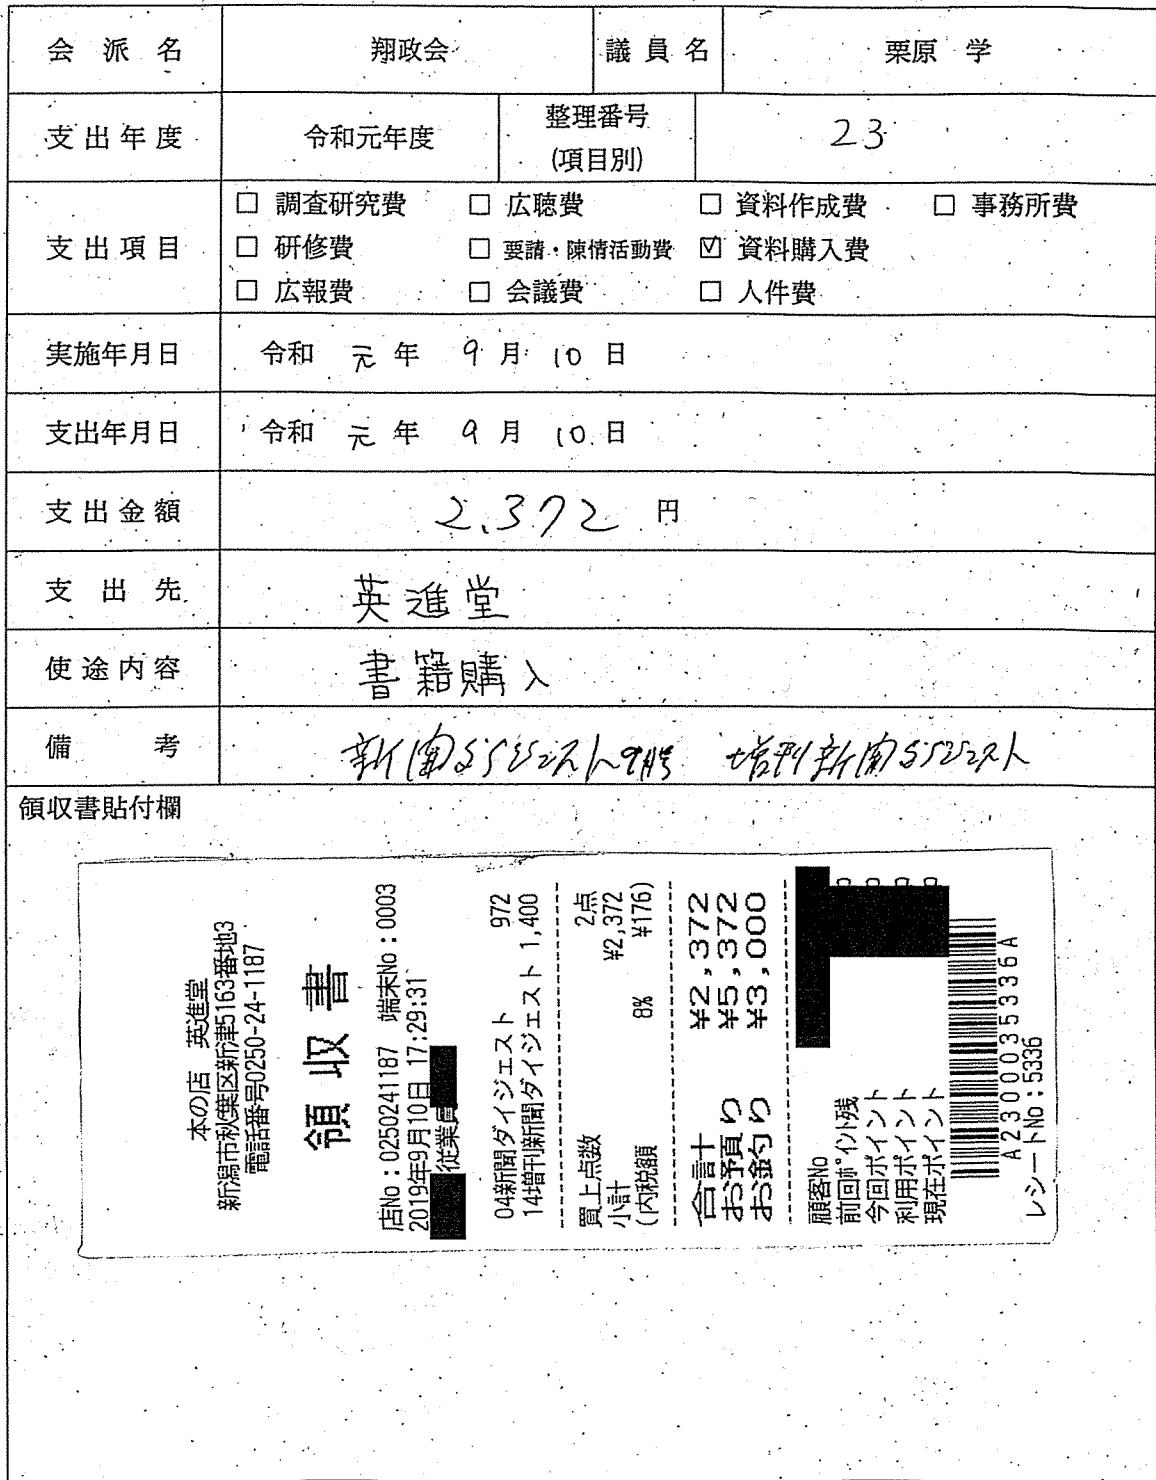 会派名 翔政会 議員名 栗原 学
支出年度 令和元年度 整理番号(項目別) 23
支出項目
□ 調査研究費 □ 広聴費 □ 資料作成費 □ 事務所費
□ 研修費 □ 要請・陳情活動費 ☑ 資料購入費
□ 広報費 □ 会議費 □ 人件費
実施年月日 令和 元 年 9 月 10 日
支出年月日 令和 元 年 9 月 10 日
支出金額 2,372 円
支出先 英進堂
使途内容 書籍購入
備考 新聞ダイジェスト9月号 増刊新聞ダイジェスト
領収書貼付欄
本の店 英進堂
新潟市秋葉区新津5163番地3
電話番号0250-24-1187
領収書
店No:0250241187 端末No:0003
2019年9月10日 17:29:31
従業員
04新聞ダイジェスト 972
14増刊新聞ダイジェスト 1,400
買上点数 2点
小計 ¥2,372
(内税額 8% ¥176)
合計 ¥2,372
お預り ¥5,372
お釣り ¥3,000
顧客No
前回ポイント残
今回ポイント
利用ポイント
現在ポイント
A2300035336A
レシートNo:5336